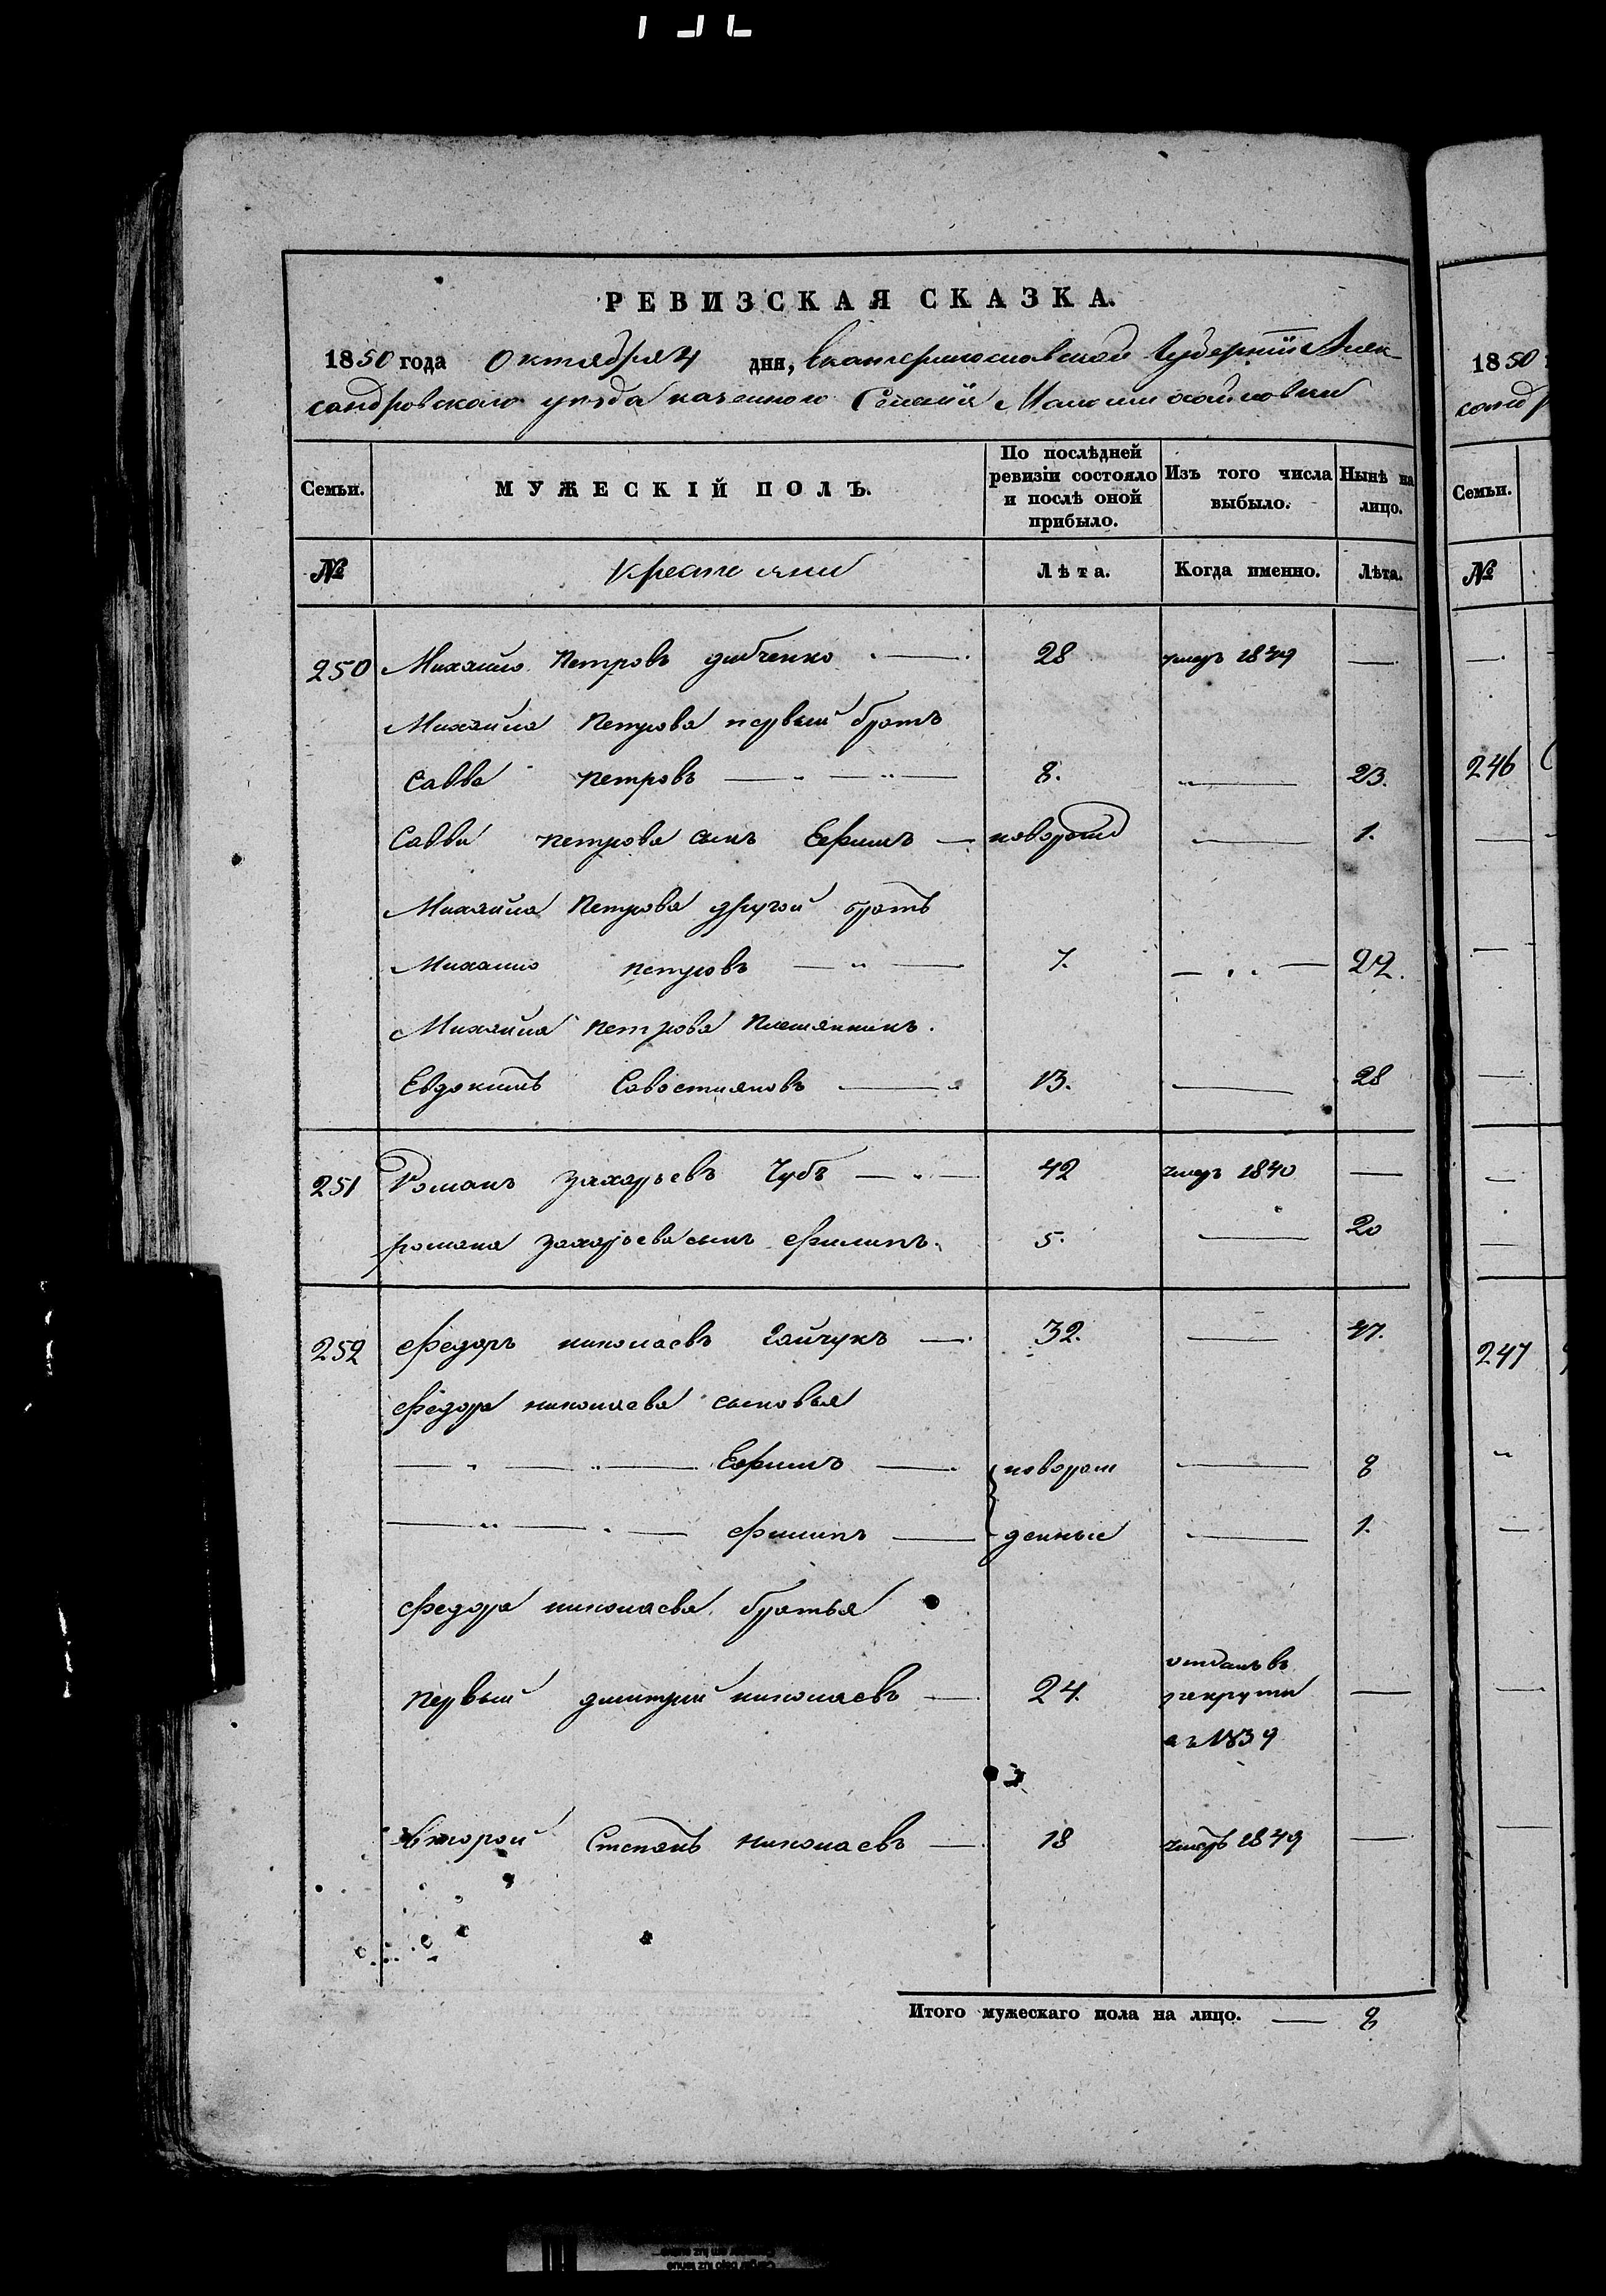 РЕВИЗСКАЯ СКАЗКА.
1850 года Октября 4 дня, Екатеринославской Губернии Алек-
сандровскаго уезда казенного Селения
Семьи. МУЖЕСКІЙ ПОЛЪ. По послѣдней ревизіи состояло и послѣ оной прибыло. Изъ того числа выбыло. Нынѣ на лицо.
№ Крестьяни Лѣта. Когда именно. Лѣта.
250 Михайло Петровъ дибченко 28 умеръ 1849 —
Михайла Петрова первый братъ
Савва петровъ 8. — 23.
Савви петрова сынъ Ефимъ — новорожд — 1.
Михайла Петрова другой братъ
Михайло петровъ 7. — 22.
Михайла петрова племянникъ.
Евдокимъ Савостияновъ 13. — 28
251 Романъ захарьевъ Чубъ 42 умеръ 1840 —
романа захарьева сынъ филипъ. 5. — 20
252 федоръ николаевъ Гайчукъ — 32. — 47.
федора николаева сыновья
Ефимъ — новорож — 8
филипъ — денные — 1.
федора николаева братья
первый дмитрий николаевъ — 24. отданъ въ рекруты въ 1839 —
второй Степанъ николаевъ — 18 умеръ 1849 —
Итого мужескаго пола на лицо. — 8
1850
санд
Семьи.
№
246
247